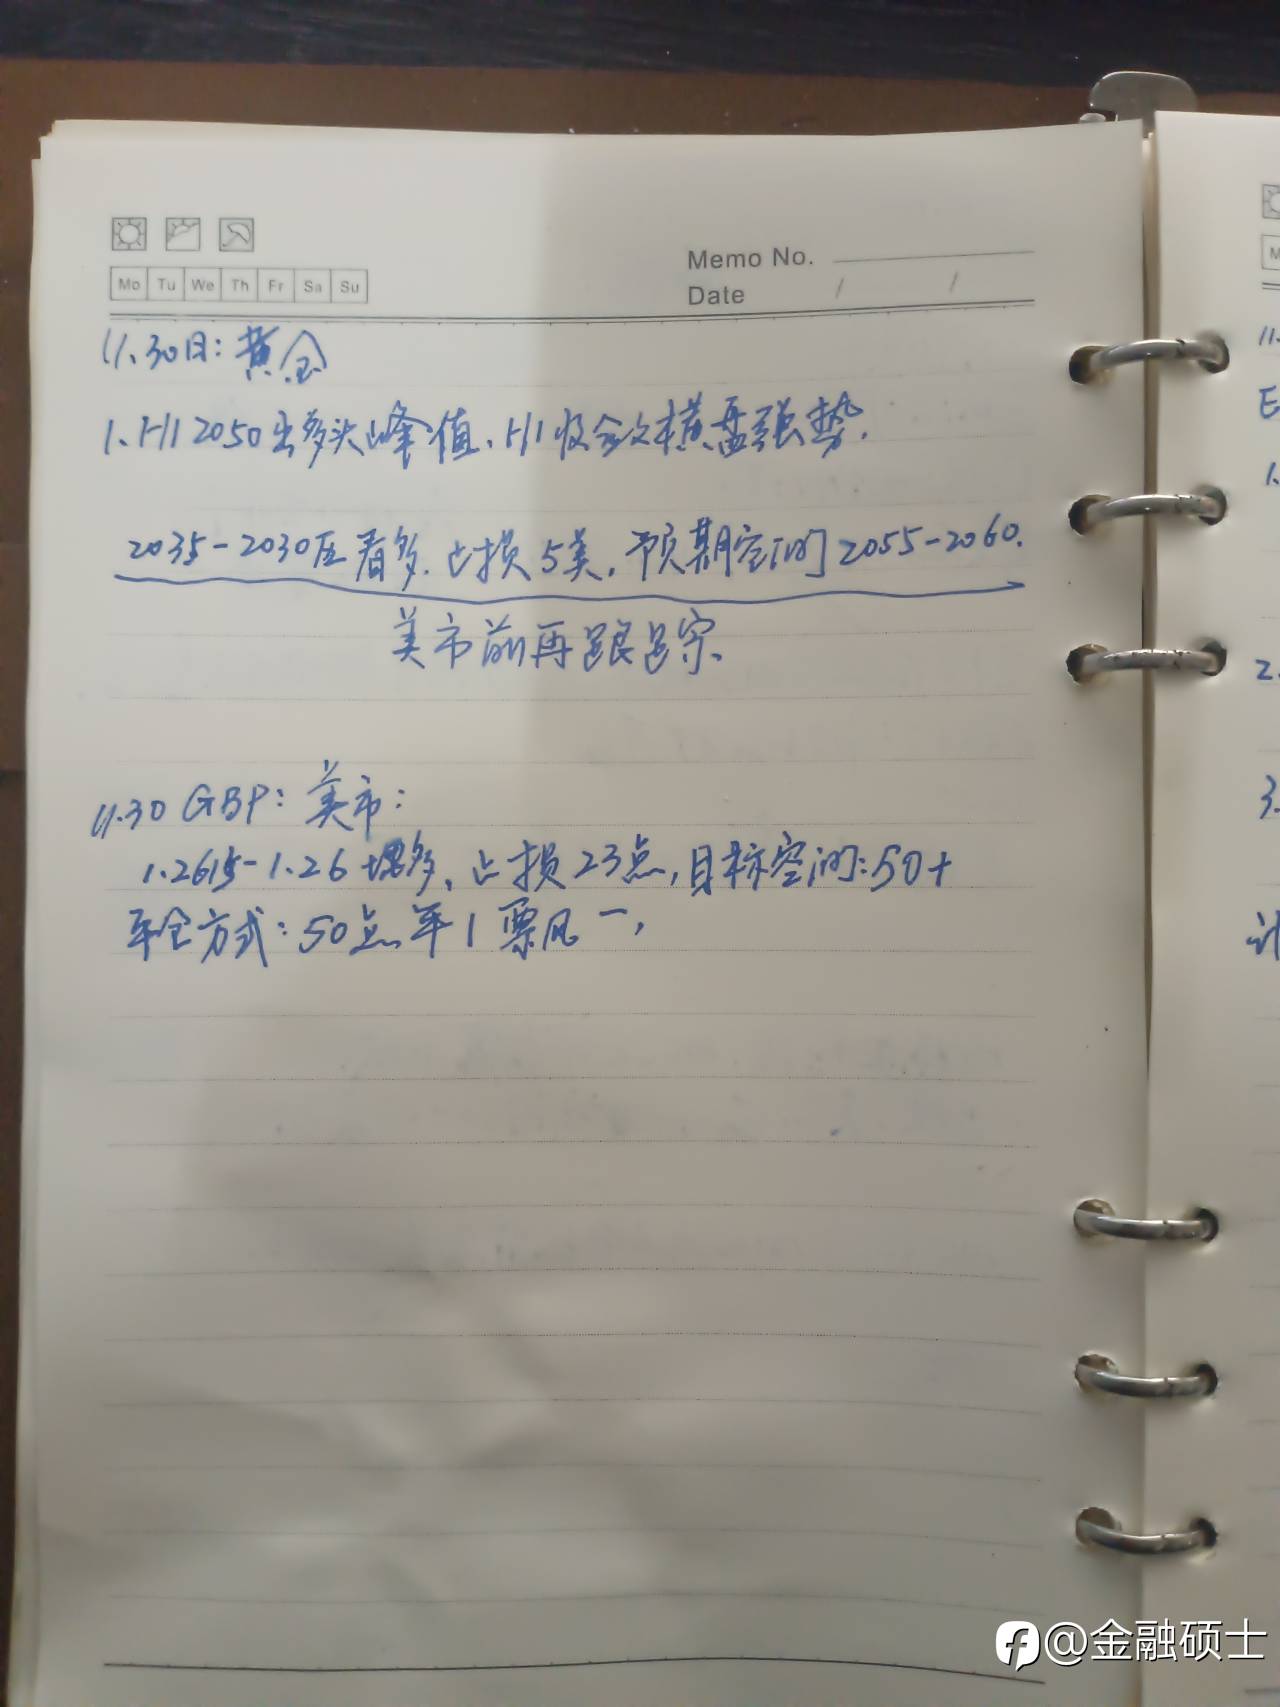 Memo No.
Mo Tu We Th Fr Sa Su
Date / /
11.30日：黄金
1、H1 2050出多头峰值、H1收敛横盘强势.
2035-2030区看多.止损5美，预期空间2055-2060.
美市前再跟踪、
11.30 GBP：美市：
1.2615-1.26 多、止损23点，目标空间：50+
方式：50点平1票风一，
11.
E
1.
2.
3.
计
@金融硕士